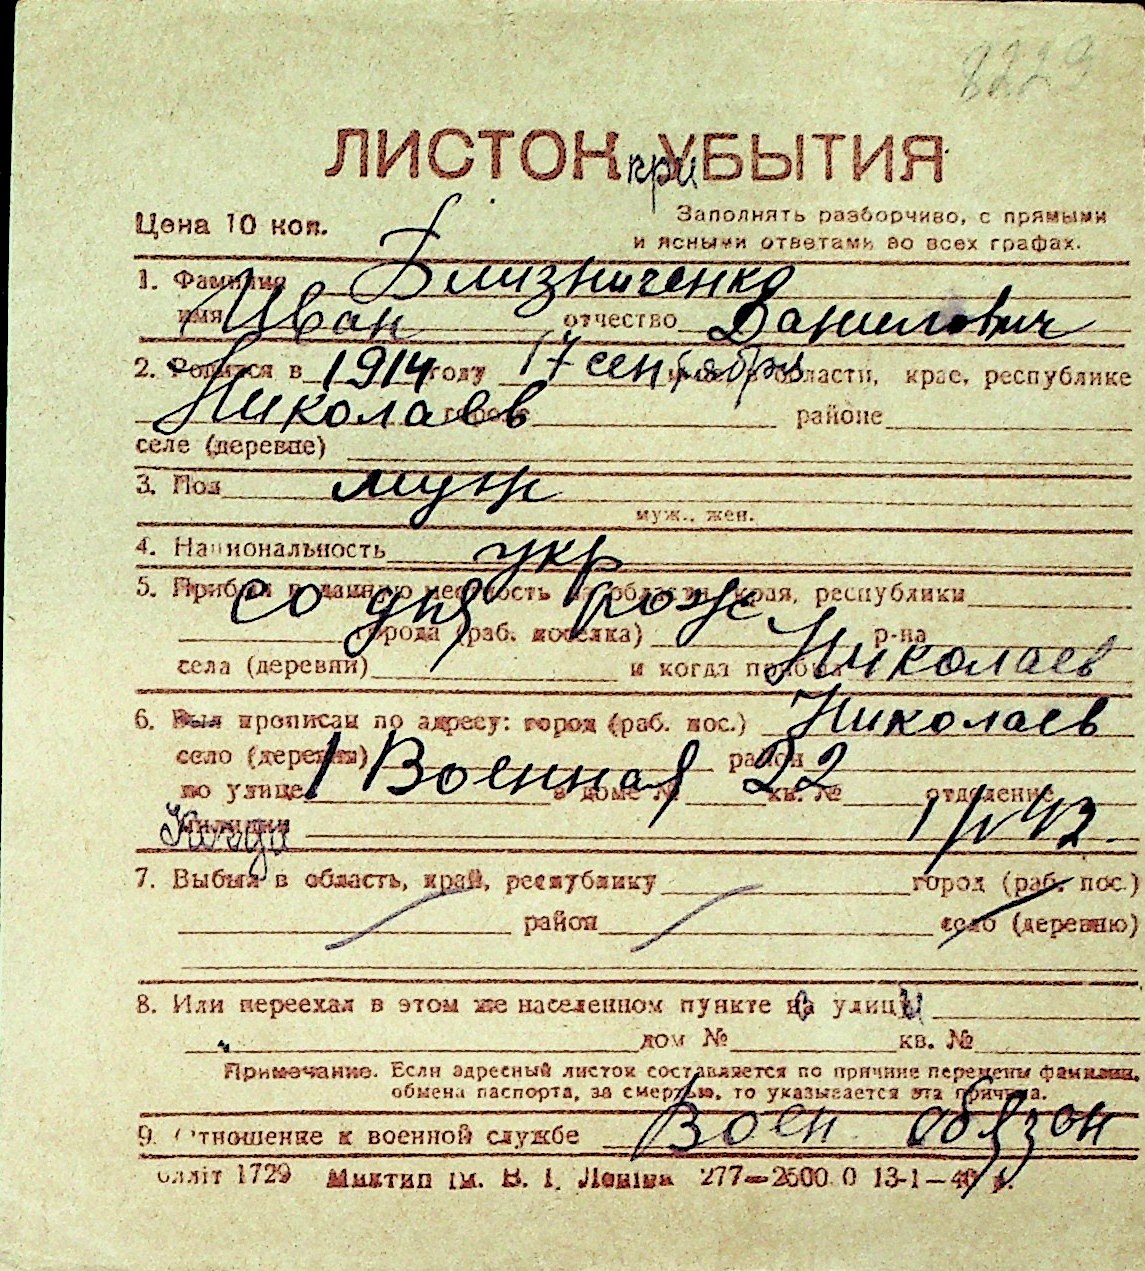 8223
ЛИСТОК при УБЫТИЯ
Цена 10 коп.
Заполнять разборчиво, с прямыми
и ясными ответами во всех графах.
1. Фамилия Близниченко
имя Иван отчество Данилович
2. Родился в 1914 году 17 сентября области, крае, республике
Николаев городе районе
селе (деревне)
3. Пол муж
муж., жен.
4. Национальность укр
5. Прибыл в данную местность из области, края, республики
со дня рож
города (раб. поселка) р-на
села (деревни) и когда прибыл Николаев
6. Был прописан по адресу: город (раб. пос.) Николаев
село (деревня) район
по улице 1 Военная в доме № 22 кв. № отделение
милиции Когда 1/V 42
7. Выбыл в область, край, республику город (раб. пос.)
район село (деревню)
8. Или переехал в этом же населенном пункте на улицы
дом № кв. №
Примечание. Если адресный листок составляется по причине перемены фамилии,
обмена паспорта, за смертью, то указывается эта причина.
9. Отношение к военной службе Воен обязан
Облліт 1729 Миктип ім. В. І. Леніна 277—2500 0 13-1—40 г.